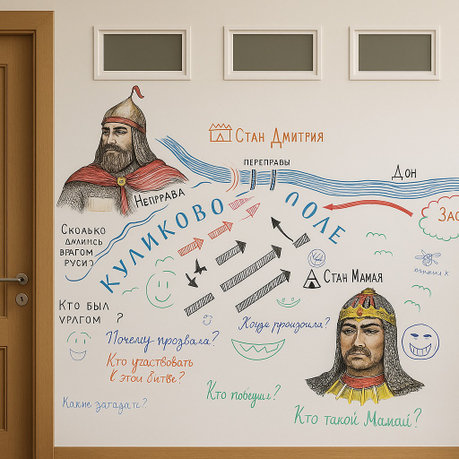 СТАН ДМИТРИЯ
ПЕРЕПРАВЫ
ДОН
НЕПРРАВА
КУЛИКОВО ПОЛЕ
ЗАС
СКОЛЬКО
ВРАГОМ
РУСИ?
СТАН МАМАЯ
КТО БЫЛ
УРАГОМ ?
Почему прозвала?
Кто участвовать
в этой битве?
Кто победил?
Какие
Кто такой Мамай?